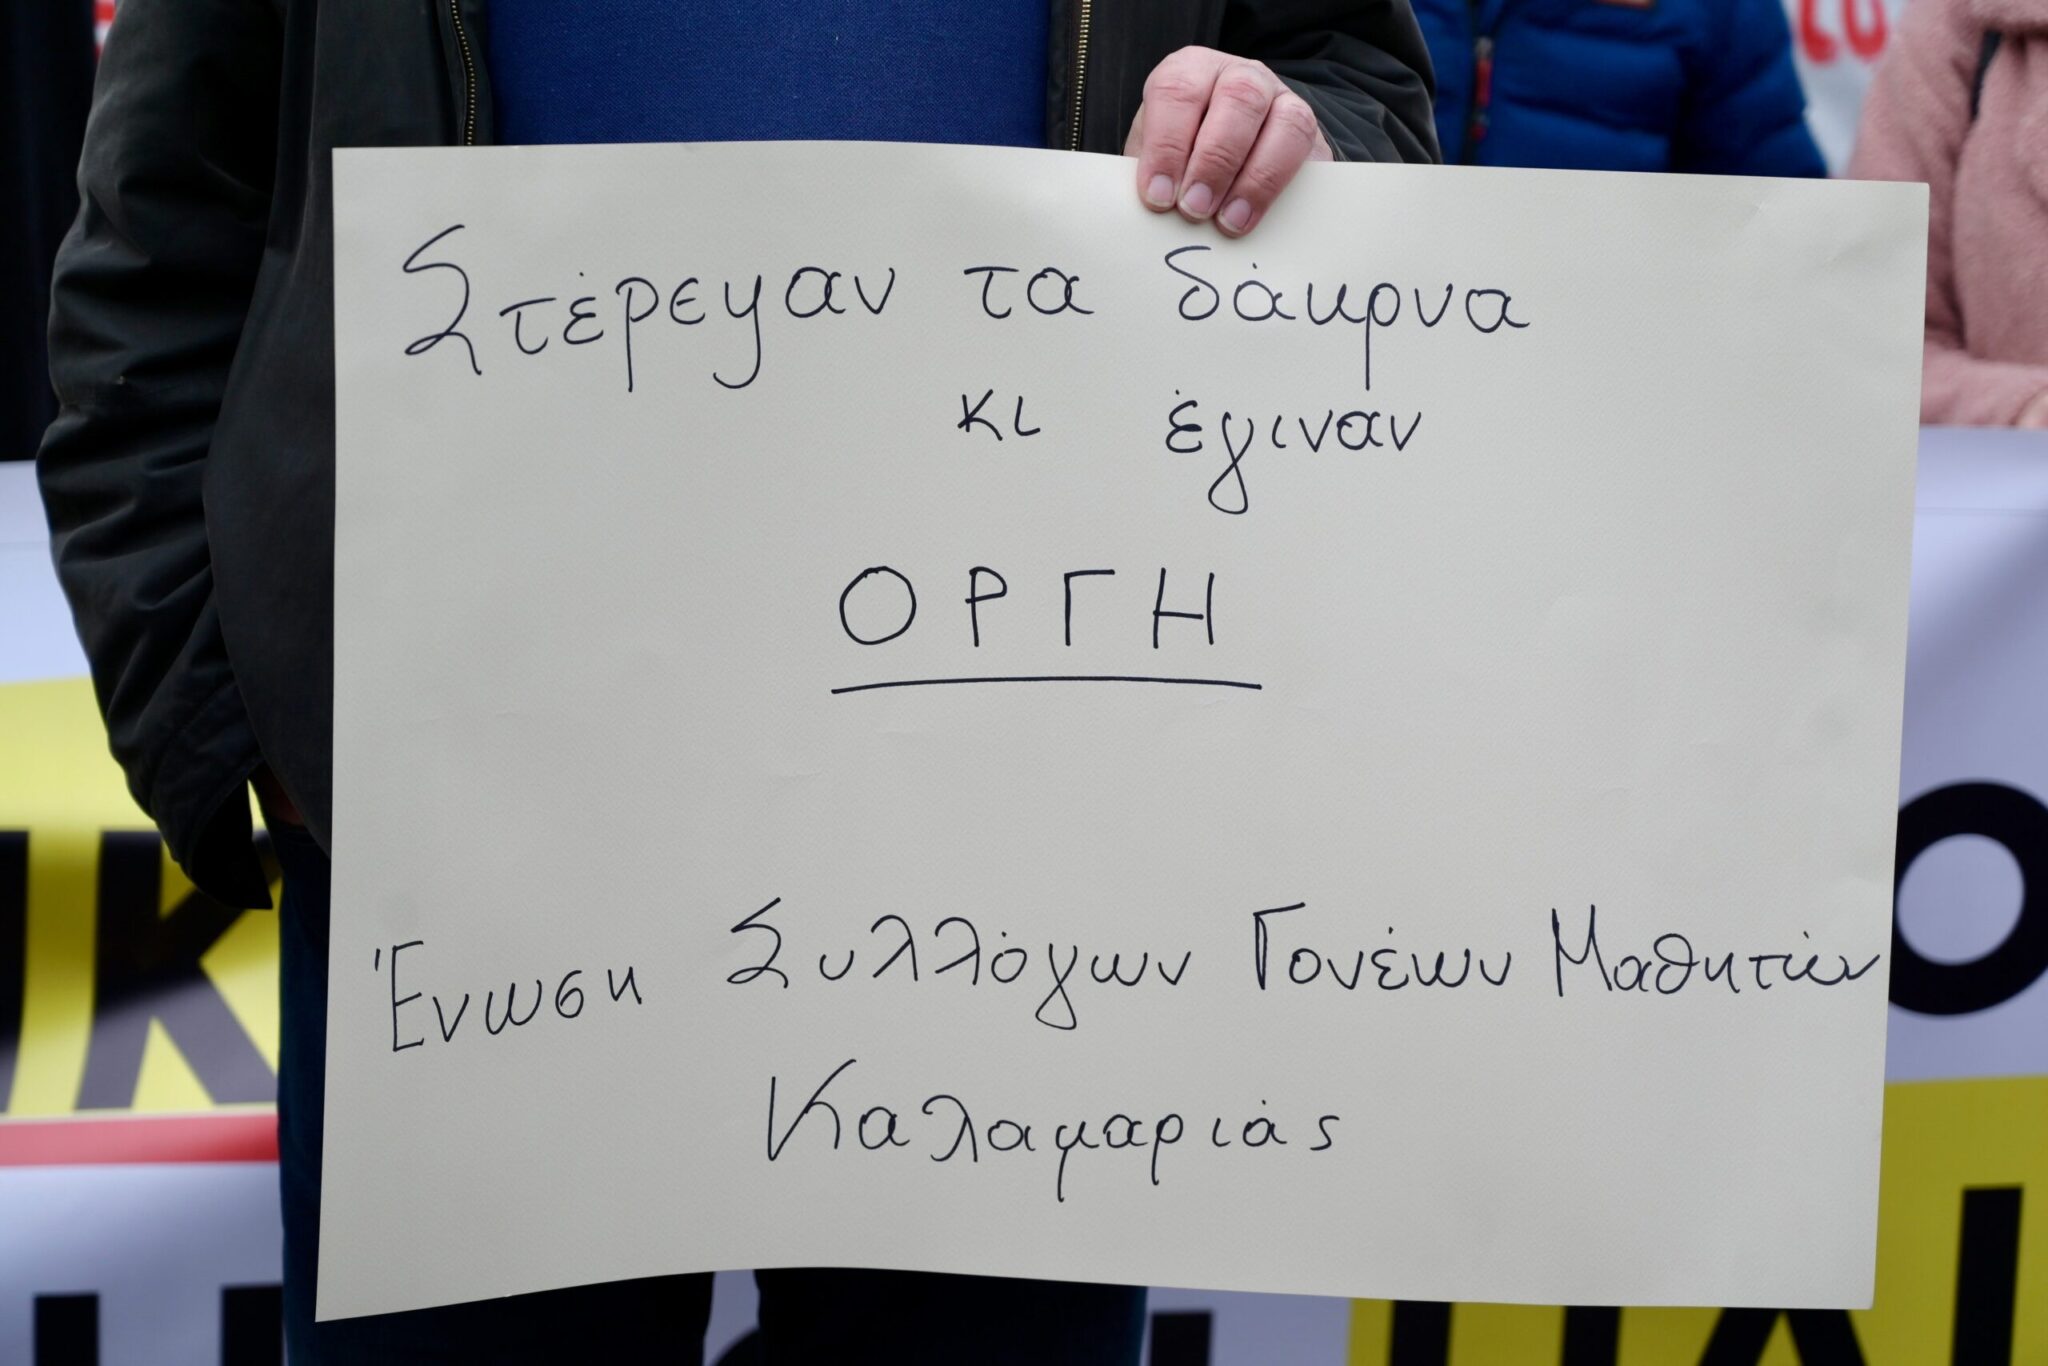 Στέρεψαν τα δάκρυα
κι έγιναν
ΟΡΓΗ
Ένωση Συλλόγων Γονέων Μαθητών
Καλαμαριάς